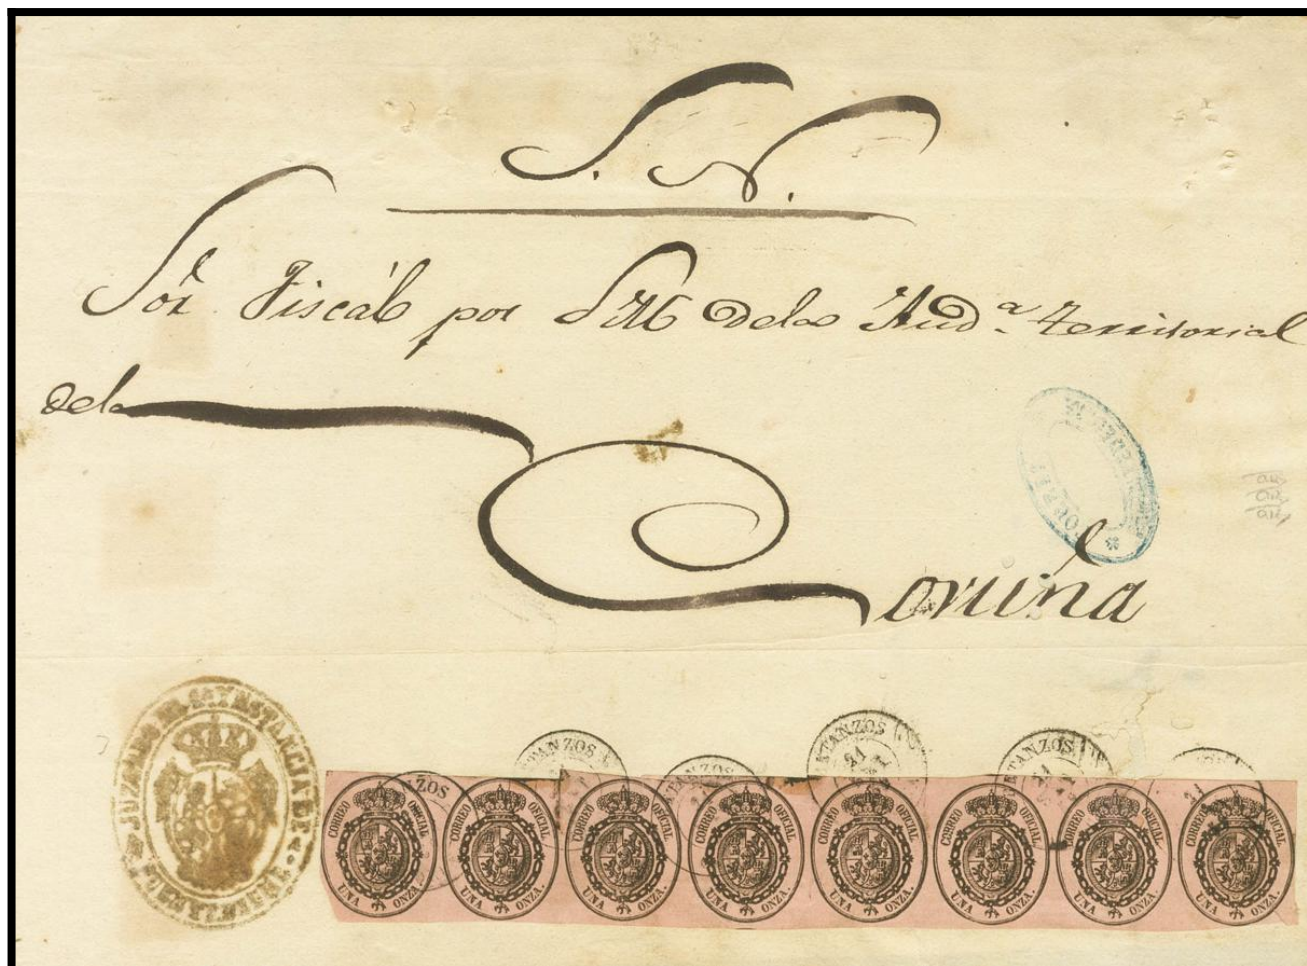 S. N.
Sor. Fiscál por S M de la Aud.ª Territorial
de la
Coruña
JUZGADO DE 1ª YNSTANCIA DE
ZOS
TANZOS
ATANZOS
ATANZOS
21
ETANZOS
21
21
CORREO OFICIAL UNA ONZA.
CORREO OFICIAL UNA ONZA.
CORREO OFICIAL UNA ONZA.
CORREO OFICIAL UNA ONZA.
CORREO OFICIAL UNA ONZA.
CORREO OFICIAL UNA ONZA.
CORREO OFICIAL UNA ONZA.
CORREO OFICIAL UNA ONZA.